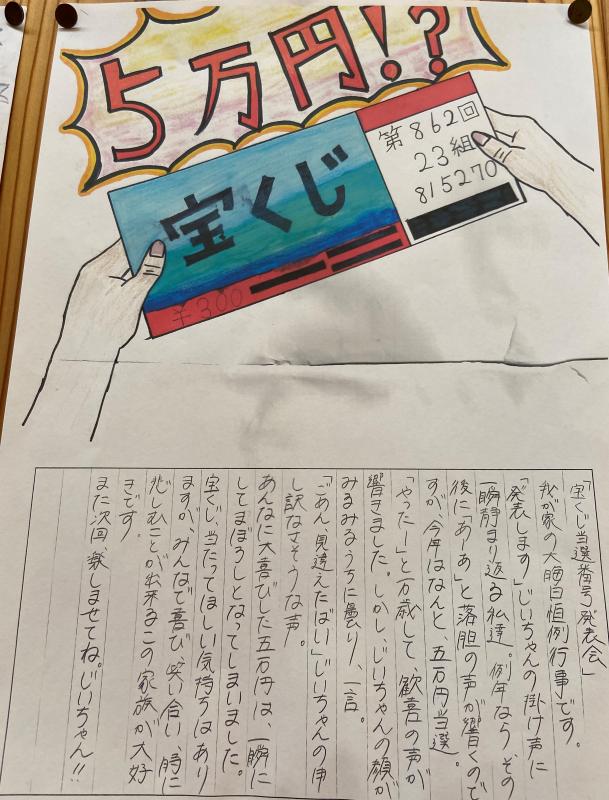 5万円!?
宝くじ
¥300
第862回
23組
815270
「宝くじ当選番号発表会」
我が家の大晦日恒例行事です。
「発表します」じいちゃんの掛け声に
一瞬静まり返る私達。例年なら、その
後に「あーあ」と落胆の声が響くので
すが、今年はなんと、五万円当選。
「やったー」と万歳して、歓喜の声が
響きました。しかし、じいちゃんの顔が
みるみるうちに曇り、一言。
「ごめん、見違えたばい」じいちゃんの申
し訳なさそうな声。
あんなに大喜びした五万円は、一瞬に
してまぼろしとなってしまいました。
宝くじ、当たってほしい気持ちはあり
ますが、みんなで喜び、笑い合い、時に
悲しむことが出来るこの家族が大好
きです。
また次回、楽しませてね。じいちゃん!!